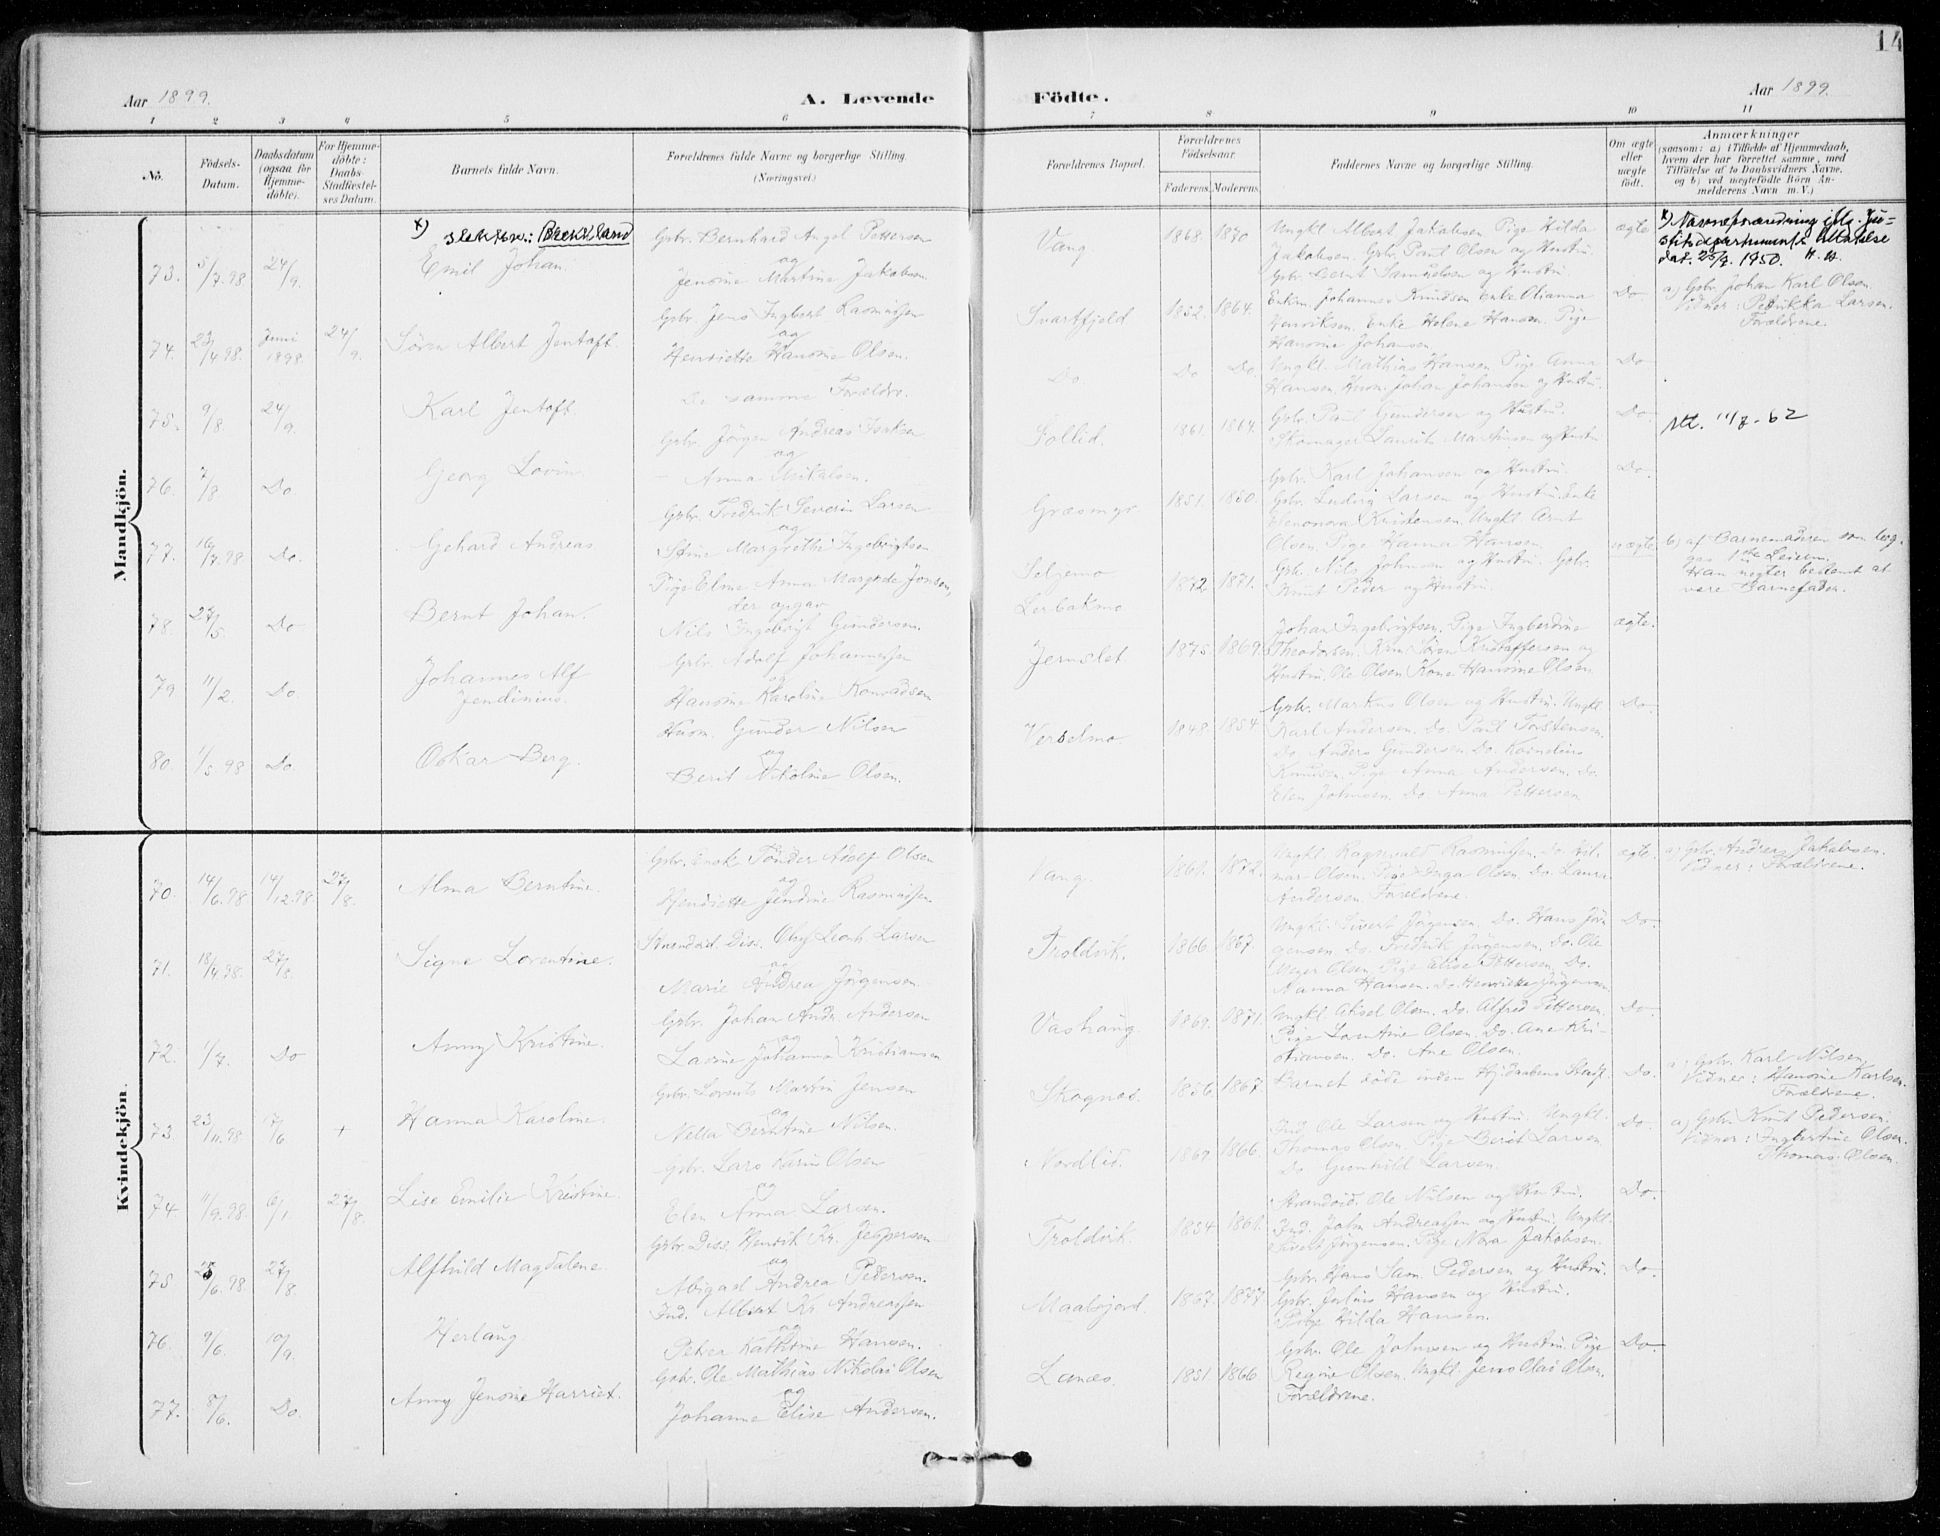 14
Aar 1899.
A. Levende
Födte.
Aar 1899.
1 2 3 4 5 6 7 8 9 10 11
No.
Födsels-
Datum.
Daabsdatum
(ogsaa for
Hjemme-
döbte).
For Hjemme-
döbte:
Daabs-
Stadfæstel-
ses Datum.
Barnets fulde Navn.
Forældrenes fulde Navne og borgerlige Stilling.
(Næringsvei.)
Forældrenes Bopæl.
Forældrenes
Födselsaar.
Faderens. Moderens.
Faddernes Navne og borgerlige Stilling.
Om ægte
eller
uægte
födt.
Anmærkninger
(saasom: a) i Tilfælde af Hjemmedaab,
hvem der har forrettet samme, med
Tilföielse af to Daabsvidners Navne,
og b) ved uægtefödte Börn An-
melderens Navn m. V.)
Mandkjön.
x) slektsn.:
73. 5/7.98 24/9. Emil Johan.
Gbr. Bernhard Angel Pettersen
og
Jensine Martine Jakobsen.
Vang 1868. 1870
Ungkl. Albert Jakobsen Pige Hilda
Jakobsen. Gbr. Paul Olsen og Hustru.
Gbr. Bernt Samuelsen og Hustru
ægte
x) Navneforandring iflg. Ju-
stitsdepartements tillatelse
dat. 25/7. 1950.
74. 23/4 98. Juni 1898. 24/9. Sören Albert Jentoft.
Gbr. Jens Ingbert Rasmussen
og
Henriette Hansine Olsen.
Svartfjeld 1852. 1864.
Enkm. Johannes Knudsen Enke Olianna
Henriksen. Enke Helene Hansen. Pige
Hansine Johansen.
Do.
a) Gbr. Johan Karl Olsen.
Vidner: Petrikka Larsen.
Forældrene.
75. 9/8. 24/9. Karl Jentoft.
De samme Forældre.
Do. Do Do.
Ungkl. Mathias Hansen Pige Anna
Hansen. Husm. Johan Johansen og Hustru.
Do
76. 7/8 Do. Georg Lovin.
Gbr. Jörgen Andreas Isaksen
og
Anna Mikalsen.
Sollid. 1861. 1864.
Gbr. Paul Gundersen og Hustru.
Skomager Laurits Martinsen og Hustru
Do
11/7-62
77. 16/7.98 Do. Gehard Andreas
Gbr. Fredrik Severin Larsen
og
Stine Margrethe Ingebrigtsen
Græsmyr 1851. 1850.
Gbr. Karl Johansen og Hustru.
Gbr. Ludvig Larsen og Hustru. Enke
Elenonora Kristensen. Ungkl. Arnt
Olsen. Pige Hanna Hansen.
Do
78. 27/5. Do Bernt Johan.
Pige Elme Anna Margrede Jonsen,
der opgav
Nils Ingebrigt Gundersen.
Seljemo
Lerbakmo
1872 1871.
Gbr. Nils Johnsen og Hustru. Gbr.
Knut Peder og Hustru.
uægte
b) af Barnemoderen som beg-
1ste Leierm.
Han negter bestemt at
være Barnefader.
79 11/2. Do Johannes Alf
Jendinius.
Gbr. Adolf Johannessen
og
Hansine Karoline Konradsen
Jernslet. 1875. 1869.
Johan Ingebrigtsen. Pige Ingberdine
Theodorsen. Kbm Sören Kristoffersen og
Hustru. Ole Olsen. Kone Hansine Olsen.
ægte.
80. 1/5.98 Do. Oskar Berg.
Husm. Gunder Nilsen
og
Berit Nikoline Olsen.
Verselmo. 1848. 1854
Gbr. Markus Olsen og Hustru. Ungkl.
Karl Andersen. Do. Paul Torstensen.
Do. Anders Gundersen. Do. Kornelius
Knudsen. Pige Anna Andersen. Do.
Elen Johnsen. Do. Anna Pettersen
Do.
Kvindekjön.
70. 14/6.98 14/12.98 27/8. Alma Berntine.
Gbr. Enske Tönder Adolf Olsen
og
Henriette Jendine Rasmussen
Vang. 1861. 1872.
Ungkl. Ragnvald Rasmussen. Do. Hil-
mar Olsen. Pige Inga Olsen. Do. Laura
Andersen. Forældrene.
ægte.
a) Gbr. Andreas Jakobsen.
Vidner: Forældrene.
71. 18/4.98. 27/8. Signe Lorentine.
Strandsid. Diss. Oluf Leonh. Larsen
og
Marie Andrea Jörgensen.
Troldvik. 1866 1867.
Ungkl. Sivert Jörgensen. Do. Hans Jör-
gensen. Do. Fredrik Jörgensen. Do. Ole
Meyer Olsen. Pige Elise Pettersen. Do.
Nanna Hansen. Do. Henrikke Jörgensen
Do.
72. 1/7. Do Anny Kristine.
Gbr. Johan Andr. Andersen
og
Lavine Johanna Kristiansen
Vashaug. 1869. 1871.
Ungkl Aksel Olsen. Do. Alfred Pettersen.
Pige Lorentine Olsen. Do. Ane Kri-
stiansen. Do. Ane Olsen.
Do.
73 23/11.98 17/6 + Hanna Karoline.
Gbr. Lorents Martin Jensen
og
Nella Berntine Nilsen.
Skognes. 1856. 1867.
Barnet döde inden Hj.daabens Stadf.
Do.
a) Gbr. Karl Nilsen.
Vidner: Hansine Karlsen.
Forældrene.
74 11/9.98. 6/1. 27/8. Lise Emilie Kristine.
Gbr. Lars Karin Olsen
og
Elen Anna Larsen.
Nordlid. 1869 1866.
Ind. Ole Larsen og Hustru. Ungkl.
Thomas Olsen. Pige Berit Larsen
Do Gunhild Larsen.
Do.
a) Gbr. Knut Pedersen.
Vidner: Ingbertine Olsen.
Thomas Olsen.
75 25/6.98 27/8. Alfhild Magdalene.
Gbr. Diss. Henrik Kr. Jespersen
og
Abigael Andrea Pedersen.
Troldvik. 1854 1861.
Strandsid. Ole Nilsen og Hustru.
Ind. John Andreassen og Hustru. Ungkl.
Sivert Jörgensen. Pige Nora Jakobsen.
Do.
76. 9/6. 10/9. Herlaug.
Ind. Albert Kr. Andreassen
og
Petra Kathrine Hansen.
Maalsjord. 1867. 1877.
Gbr. Hans Sam. Pedersen og Hustru.
Gbr. Julius Hansen og Hustru.
Pige Hilda Hansen.
Do.
77. 8/6. Do. Anny Jensine Harriet.
Gbr. Ole Mathias Nikolai Olsen
og
Johanne Elise Andersen.
Lanæs. 1851 1866
Gbr. Ole Johnsen og Hustru. Pige
Regine Olsen. Ungkl Jens Olai Olsen.
Forældrene.
Do.